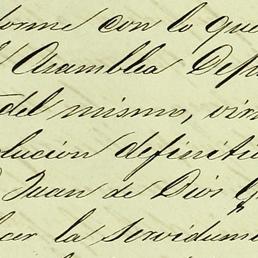 forme con lo que
Asamblea Dep
del mismo, vir
lucion definiti
Juan de Dios G
cer la servidum